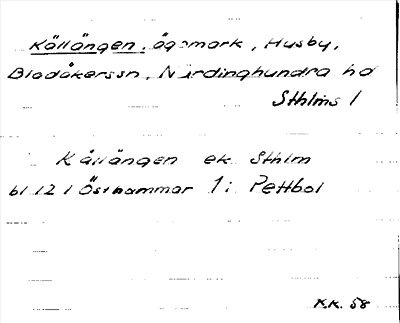 Källängen, ägomark, Husby,
Bladåkerssn, Närdinghundra hd
Sthlms l
Källängen ek Sthlm
bl 12 l Östhammar 1 i Pettbol
K.K. 58